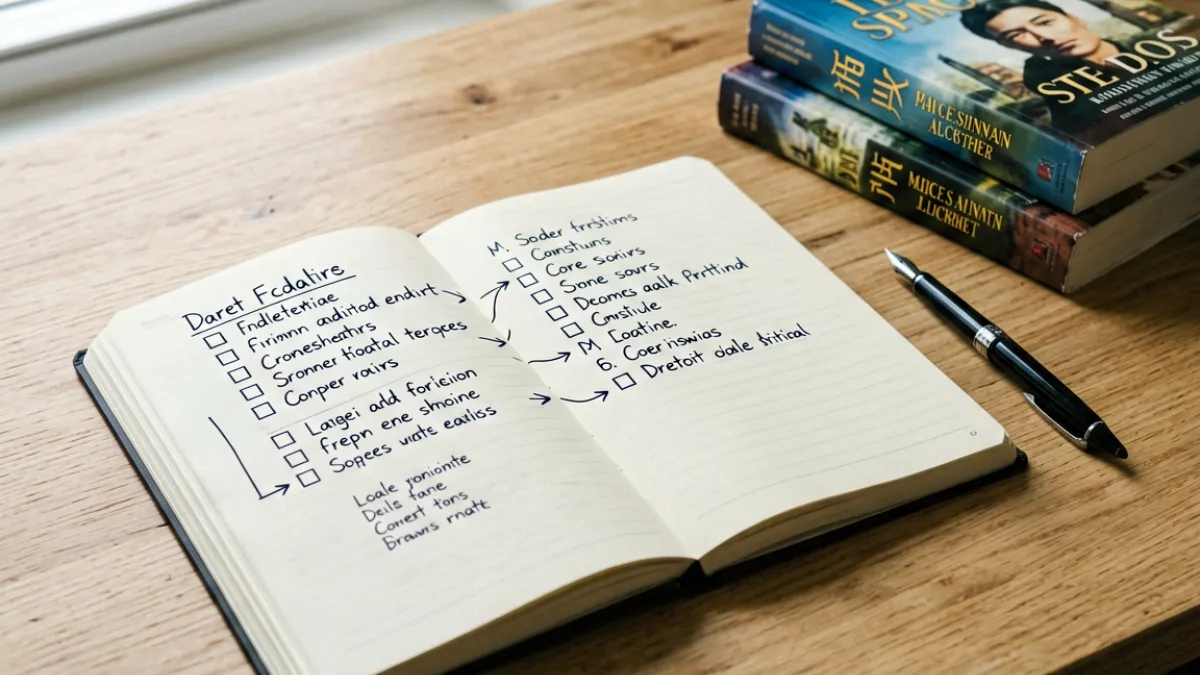 Daret Fcdalire
Fndleteriae
Firimn anditiod endirt
Cronesheattrs
Sronner Hoatal terqces
Conper vairs
Largei add foricion
frepn ene smoine
Sopees virte earliss
Loale yonionite
Deils fane
Comert tons
Drawns matt
M. Soder frrstims
Comstiuns
Core soniirs
Sone saurs
Deomes aalk Prrttind
Cmstiule
M Eoatine.
6. Coer iswias
Dretoit oiale štitical
SPAC
STE DOS
MAICESINNAN
ALCGTHER
MIICES AINATN
LJUCKNET